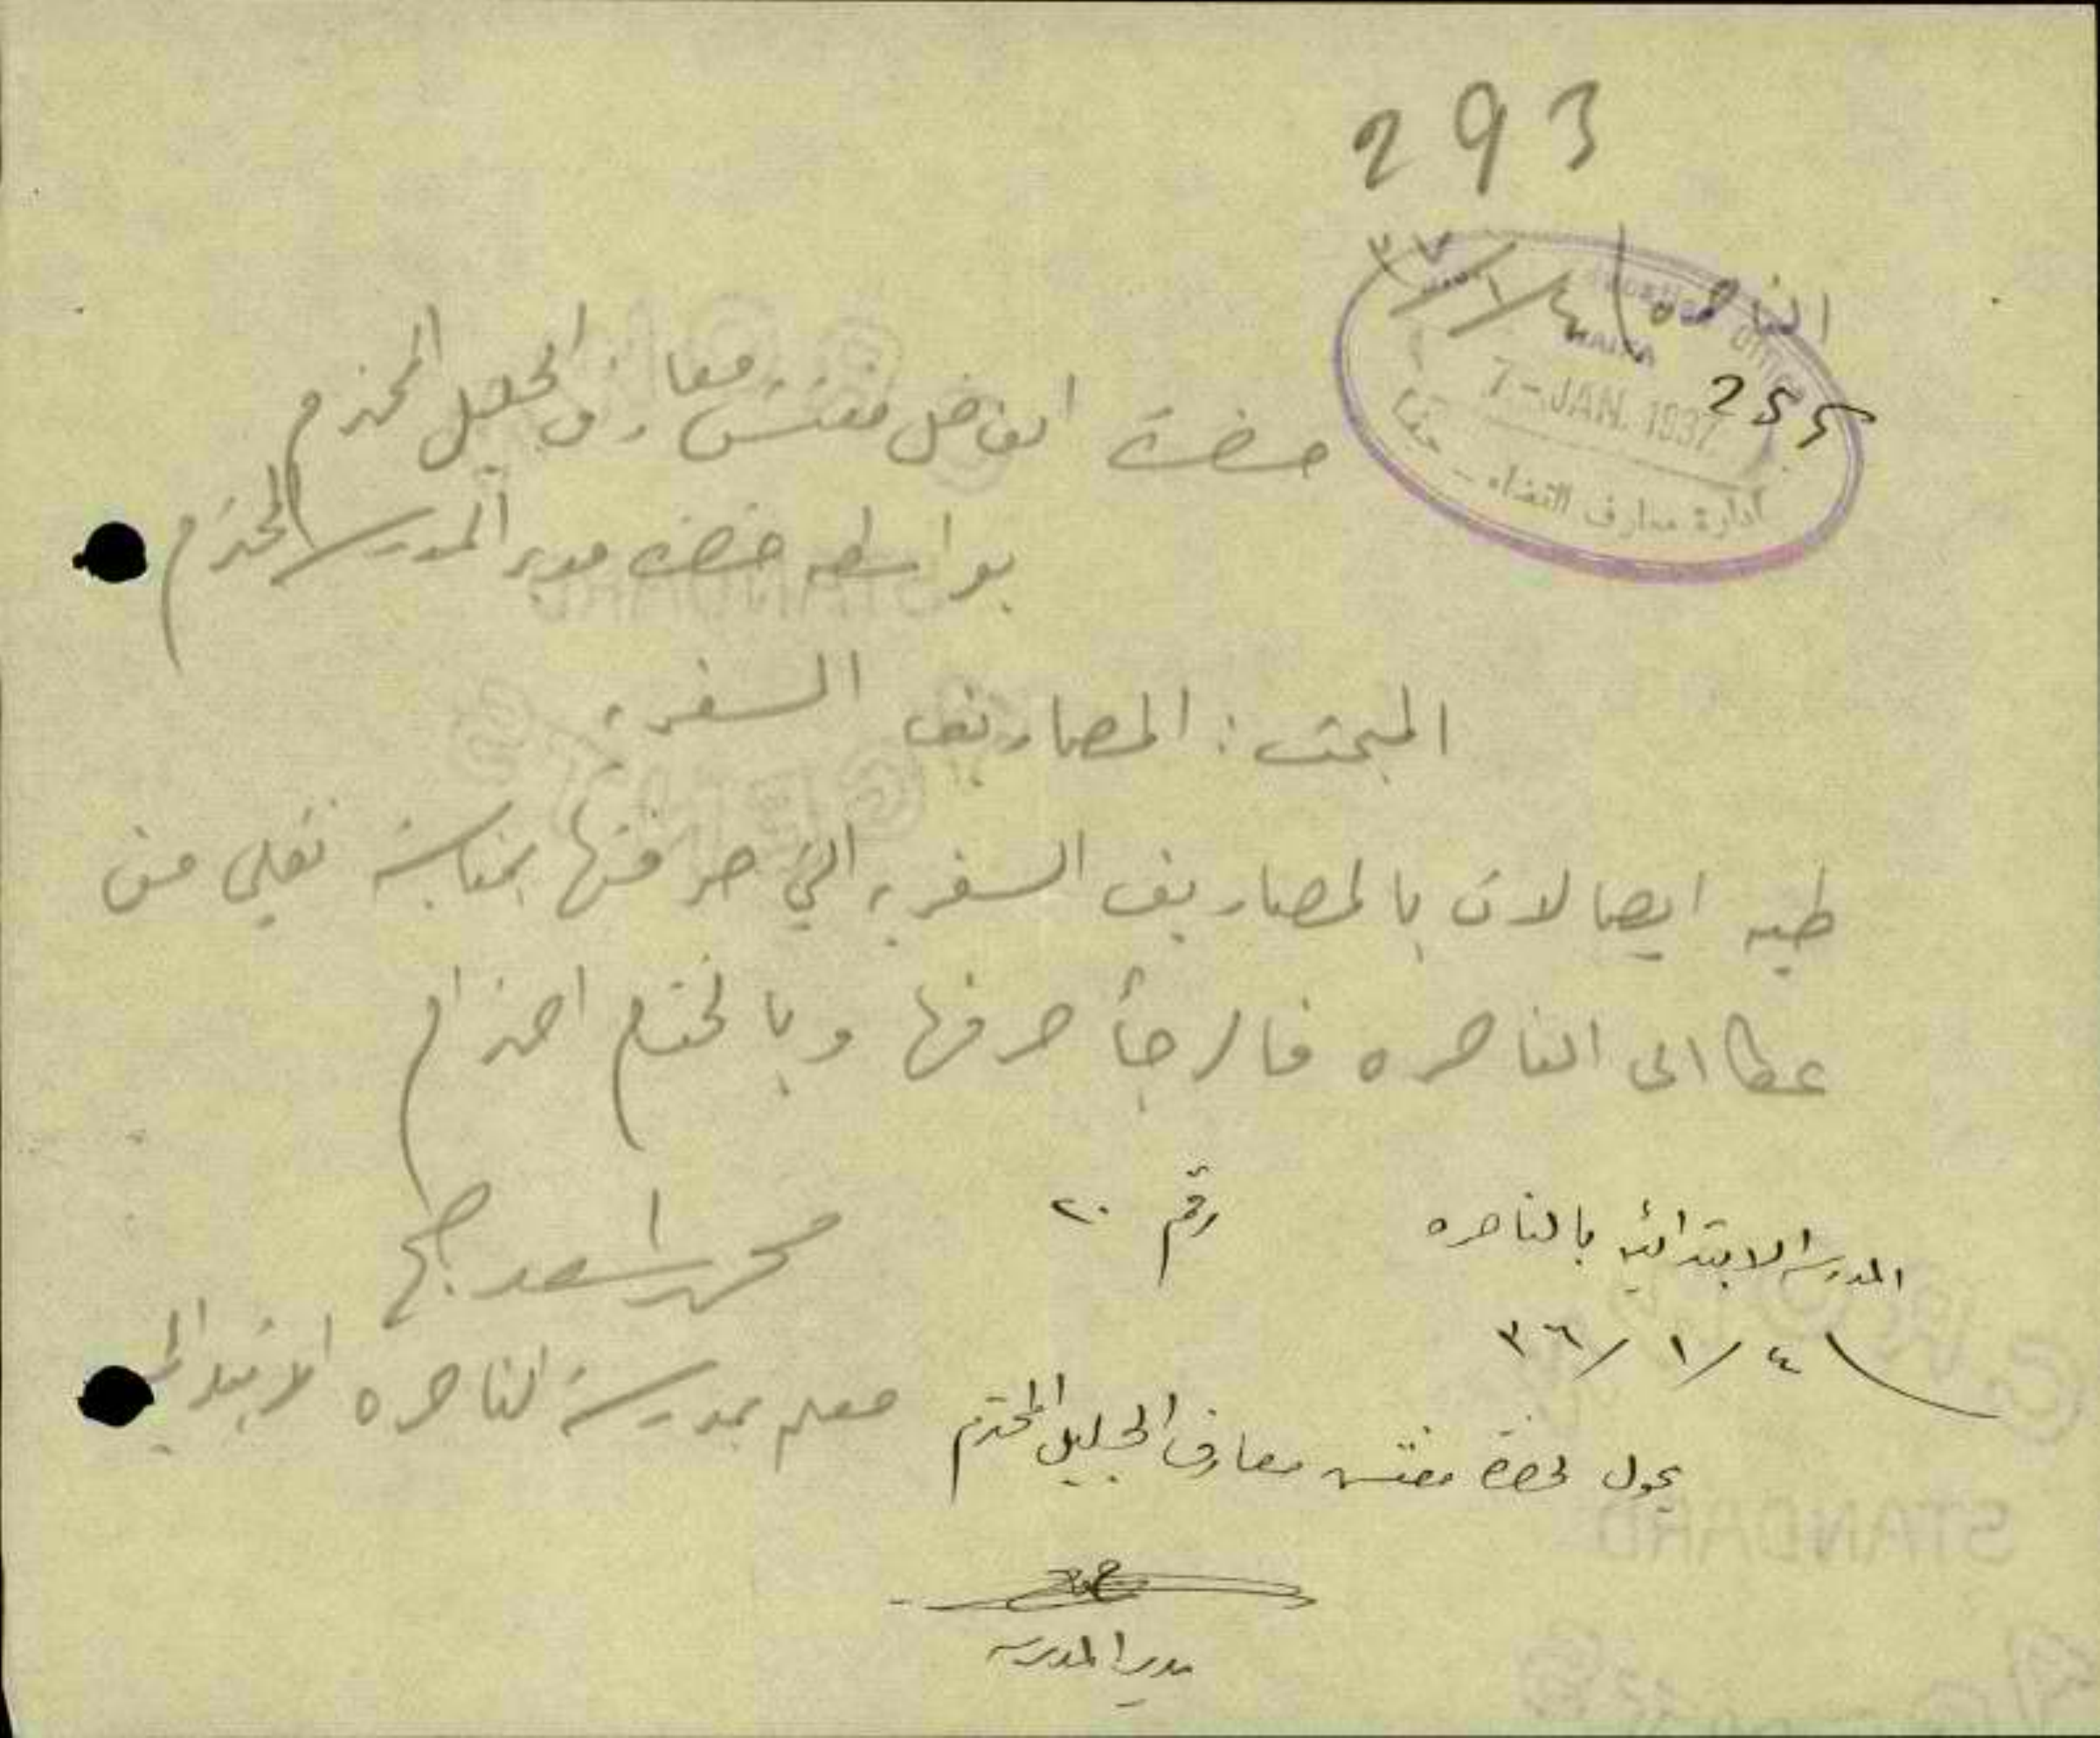 293
الناصره ٤/١/٣٧
HAIFA
7-JAN. 1937
255
ادارة معارف القضاء - حيفا
حضرة الفاضل مفتش معارف الجليل المحترم
بواسطه حضرة مدير المدرسه المحترم
المبحث : المصاريف السفريه
طيه ايصالات بالمصاريف السفريه التي صرفتها بمناسبة نقلي من
عكا الى الناصره فالرجأ صرفها وبالختام احترام
محمد اسعد
معلم بمدرسة الناصره الابتدائيه
المدرسه الابتدائيه بالناصره
رقم ٢٠
٤/١/٣٦
يحول لحضرة مفتش معارف الجليل المحترم
مدير المدرسه
STANDARD